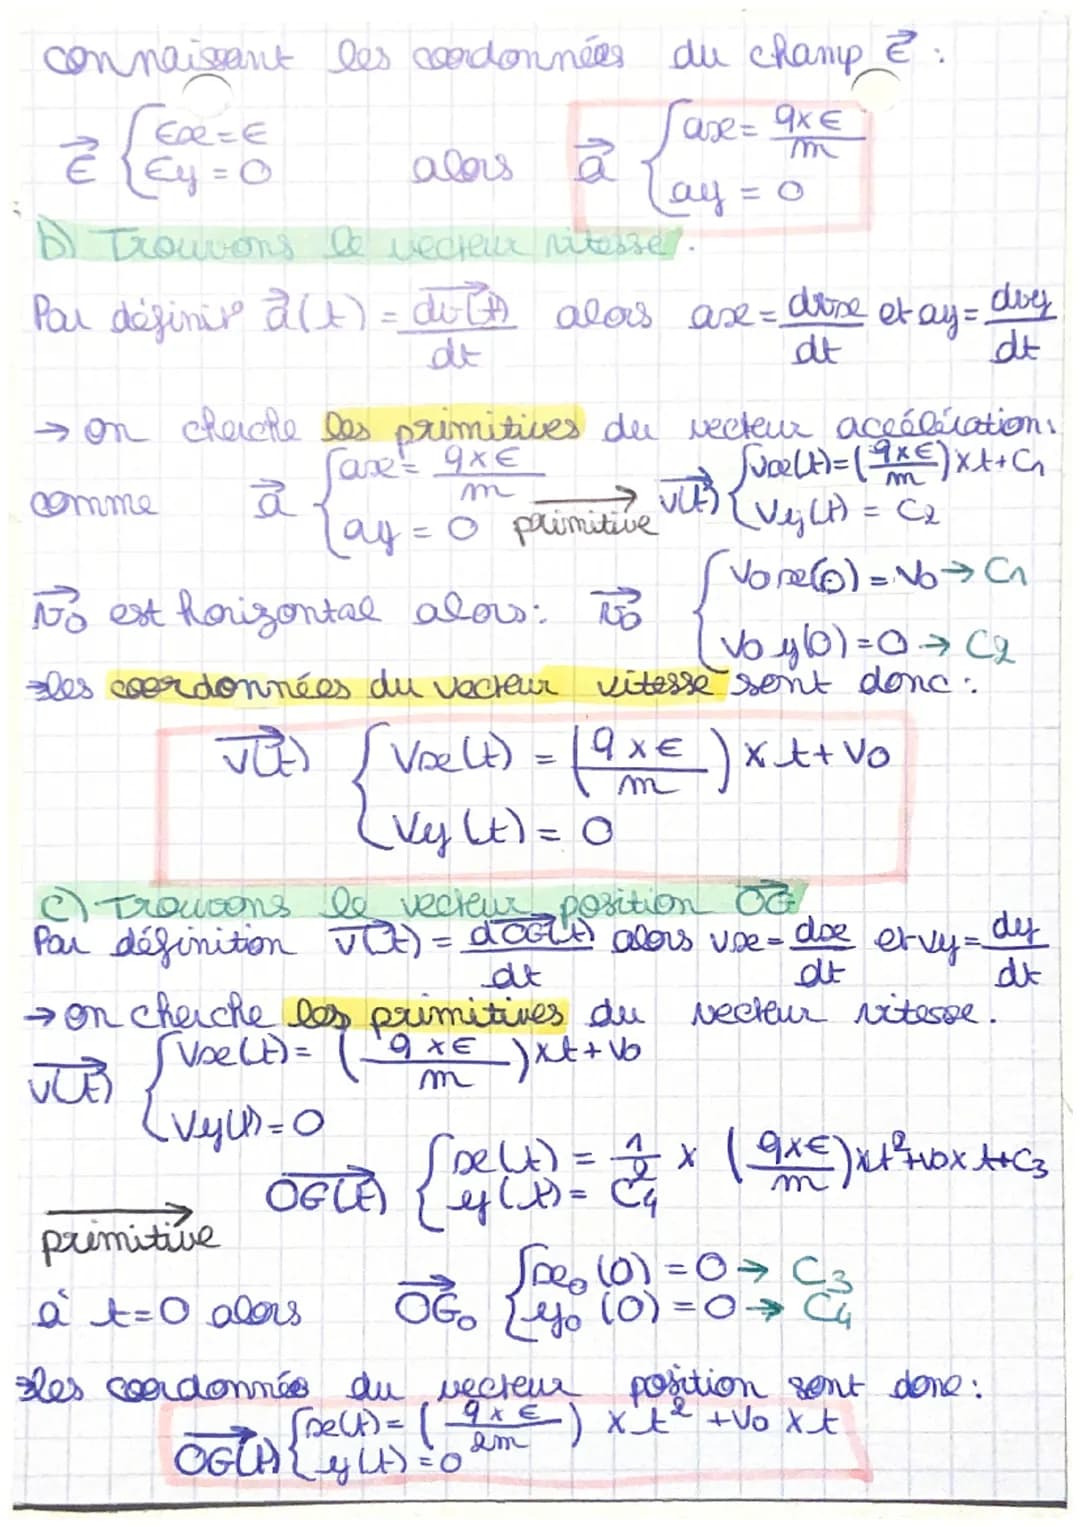 connaissant les coordonnées du champ E⃗ :
E⃗ { Ex = E
Ey = 0
alors a⃗ { ax = q×E/m
ay = 0
b) Trouvons le vecteur vitesse.
Par définit° a⃗(t) = dv⃗(t)/dt alors ax = dvx/dt et ay = dvy/dt
→ on cherche les primitives du vecteur accélération:
comme a⃗ { ax = q×E/m
ay = 0
primitive→ v⃗(t) { vx(t) = (q×E/m)×t+C1
Vy(t) = C2
v⃗0 est horizontal alors: v⃗0 { V0x(0) = V0 → C1
V0y(0) = 0 → C2
→les coordonnées du vecteur vitesse sont donc :
v⃗(t) { Vx(t) = (q×E/m)×t+V0
Vy(t) = 0
c) Trouvons le vecteur position OG⃗
Par définition v⃗(t) = dOG⃗(t)/dt alors vx = dx/dt et vy = dy/dt
→ on cherche les primitives du vecteur vitesse.
v⃗(t) { Vx(t) = (q×E/m)×t+V0
Vy(t) = 0
primitive→ OG⃗(t) { x(t) = 1/2 × (q×E/m)×t²+V0×t+C3
y(t) = C4
à t=0 alors OG⃗0 { x0(0) = 0 → C3
y0(0) = 0 → C4
→les coordonnées du vecteur position sont donc :
OG⃗(t) { x(t) = (q×E/2m) × t² + V0 × t
y(t) = 0